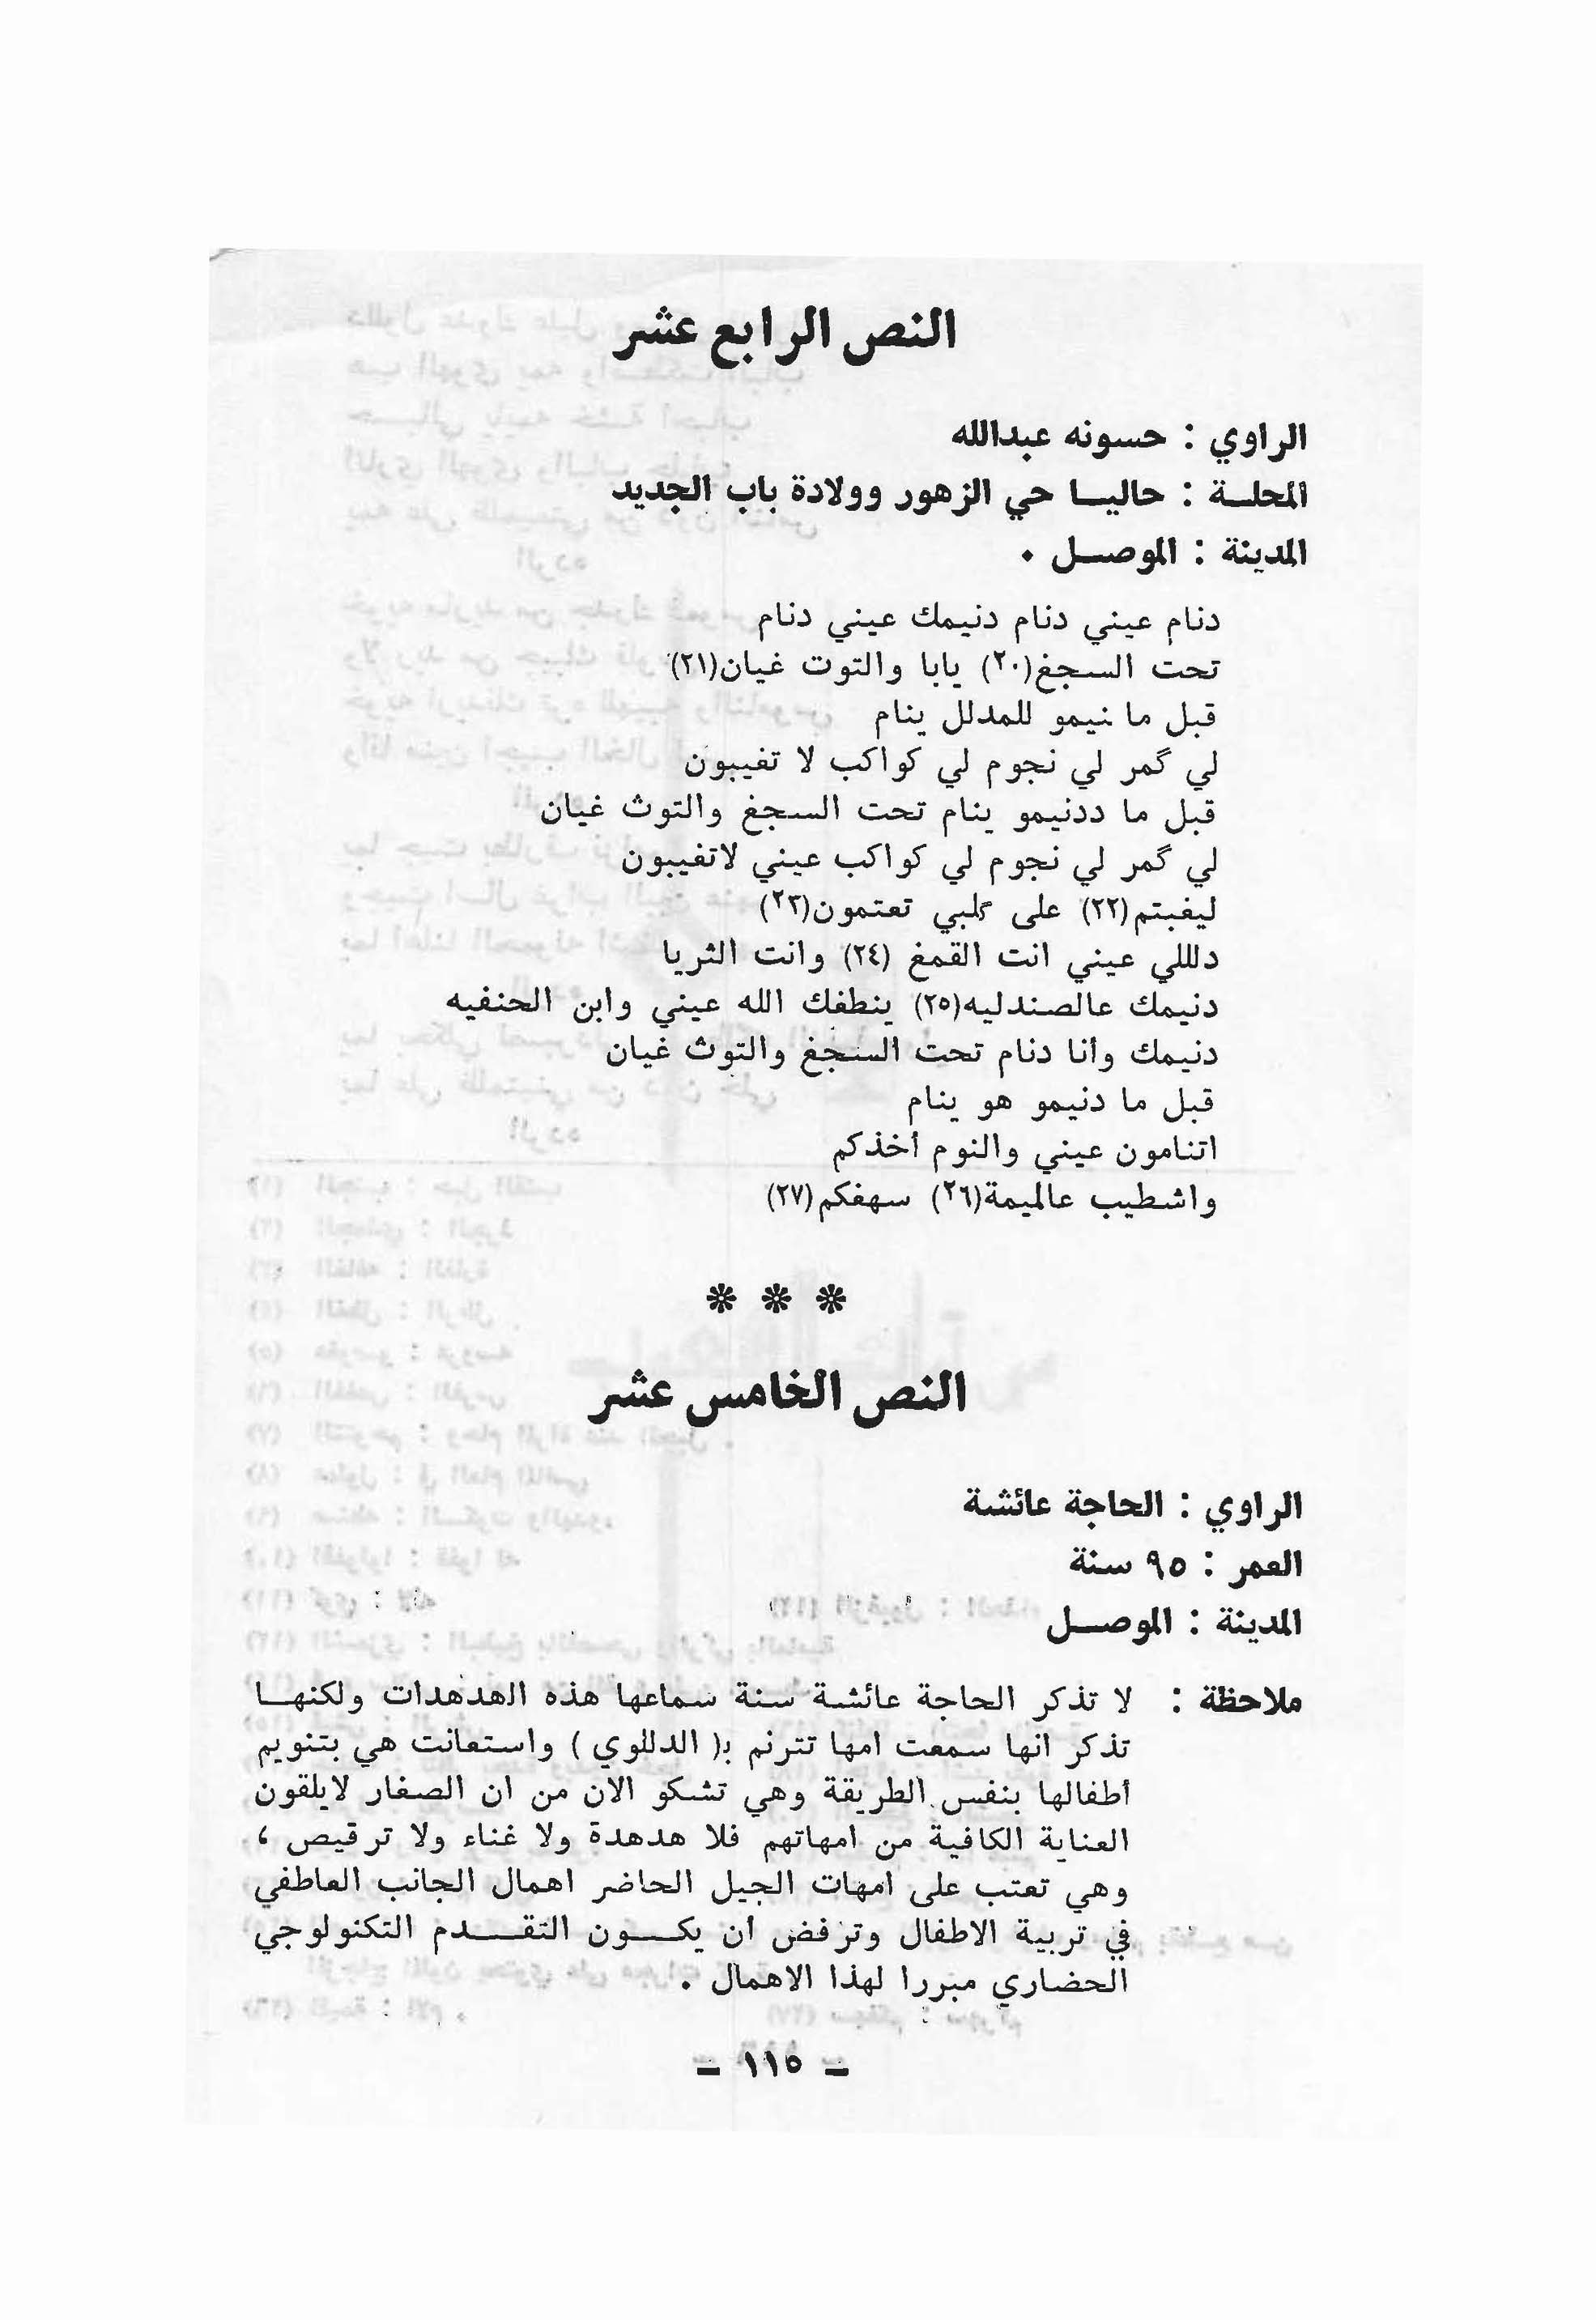 النص الرابع عشر
الراوي : حسونه عبدالله
المحلـة : حاليـا حي الزهور وولادة باب الجديد
المدينة : الموصـل .
دنام عيني دنام دنيمك عيني دنام
تحت السجغ(٢٠) يابا والتوت غيان(٢١)
قبل ما نيمو للمدلل ينام
لي گمر لي نجوم لي كواكب لا تغيبون
قبل ما ددنيمو ينام تحت السجغ والتوث غيان
لي گمر لي نجوم لي كواكب عيني لاتغيبون
ليغبتم(٢٢) على گلبي تعتمون(٢٣)
دلللي عيني انت القمغ (٢٤) وانت الثريا
دنيمك عالصندليه(٢٥) ينطفك الله عيني وابن الحنفيه
دنيمك وأنا دنام تحت السجغ والتوث غيان
قبل ما دنيمو هو ينام
اتنامون عيني والنوم أخذكم
واشطيب عالميمة(٢٦) سهغكم(٢٧)
* * *
النص الخامس عشر
الراوي : الحاجة عائشة
العمر : ٩٥ سنة
المدينة : الموصـل
ملاحظة : لا تذكر الحاجة عائشة سنة سماعها هذه الهدهدات ولكنهـا
تذكر انها سمعت امها تترنم بـ( الدللوي ) واستعانت هي بتنويم
أطفالها بنفس الطريقة وهي تشكو الان من ان الصغار لايلقون
العناية الكافية من امهاتهم فلا هدهدة ولا غناء ولا ترقيص ،
وهي تعتب على امهات الجيل الحاضر اهمال الجانب العاطفي
في تربية الاطفال وترفض أن يكـون التقـدم التكنولوجي
الحضاري مبررا لهذا الاهمال .
ـ ١١٥ ـ